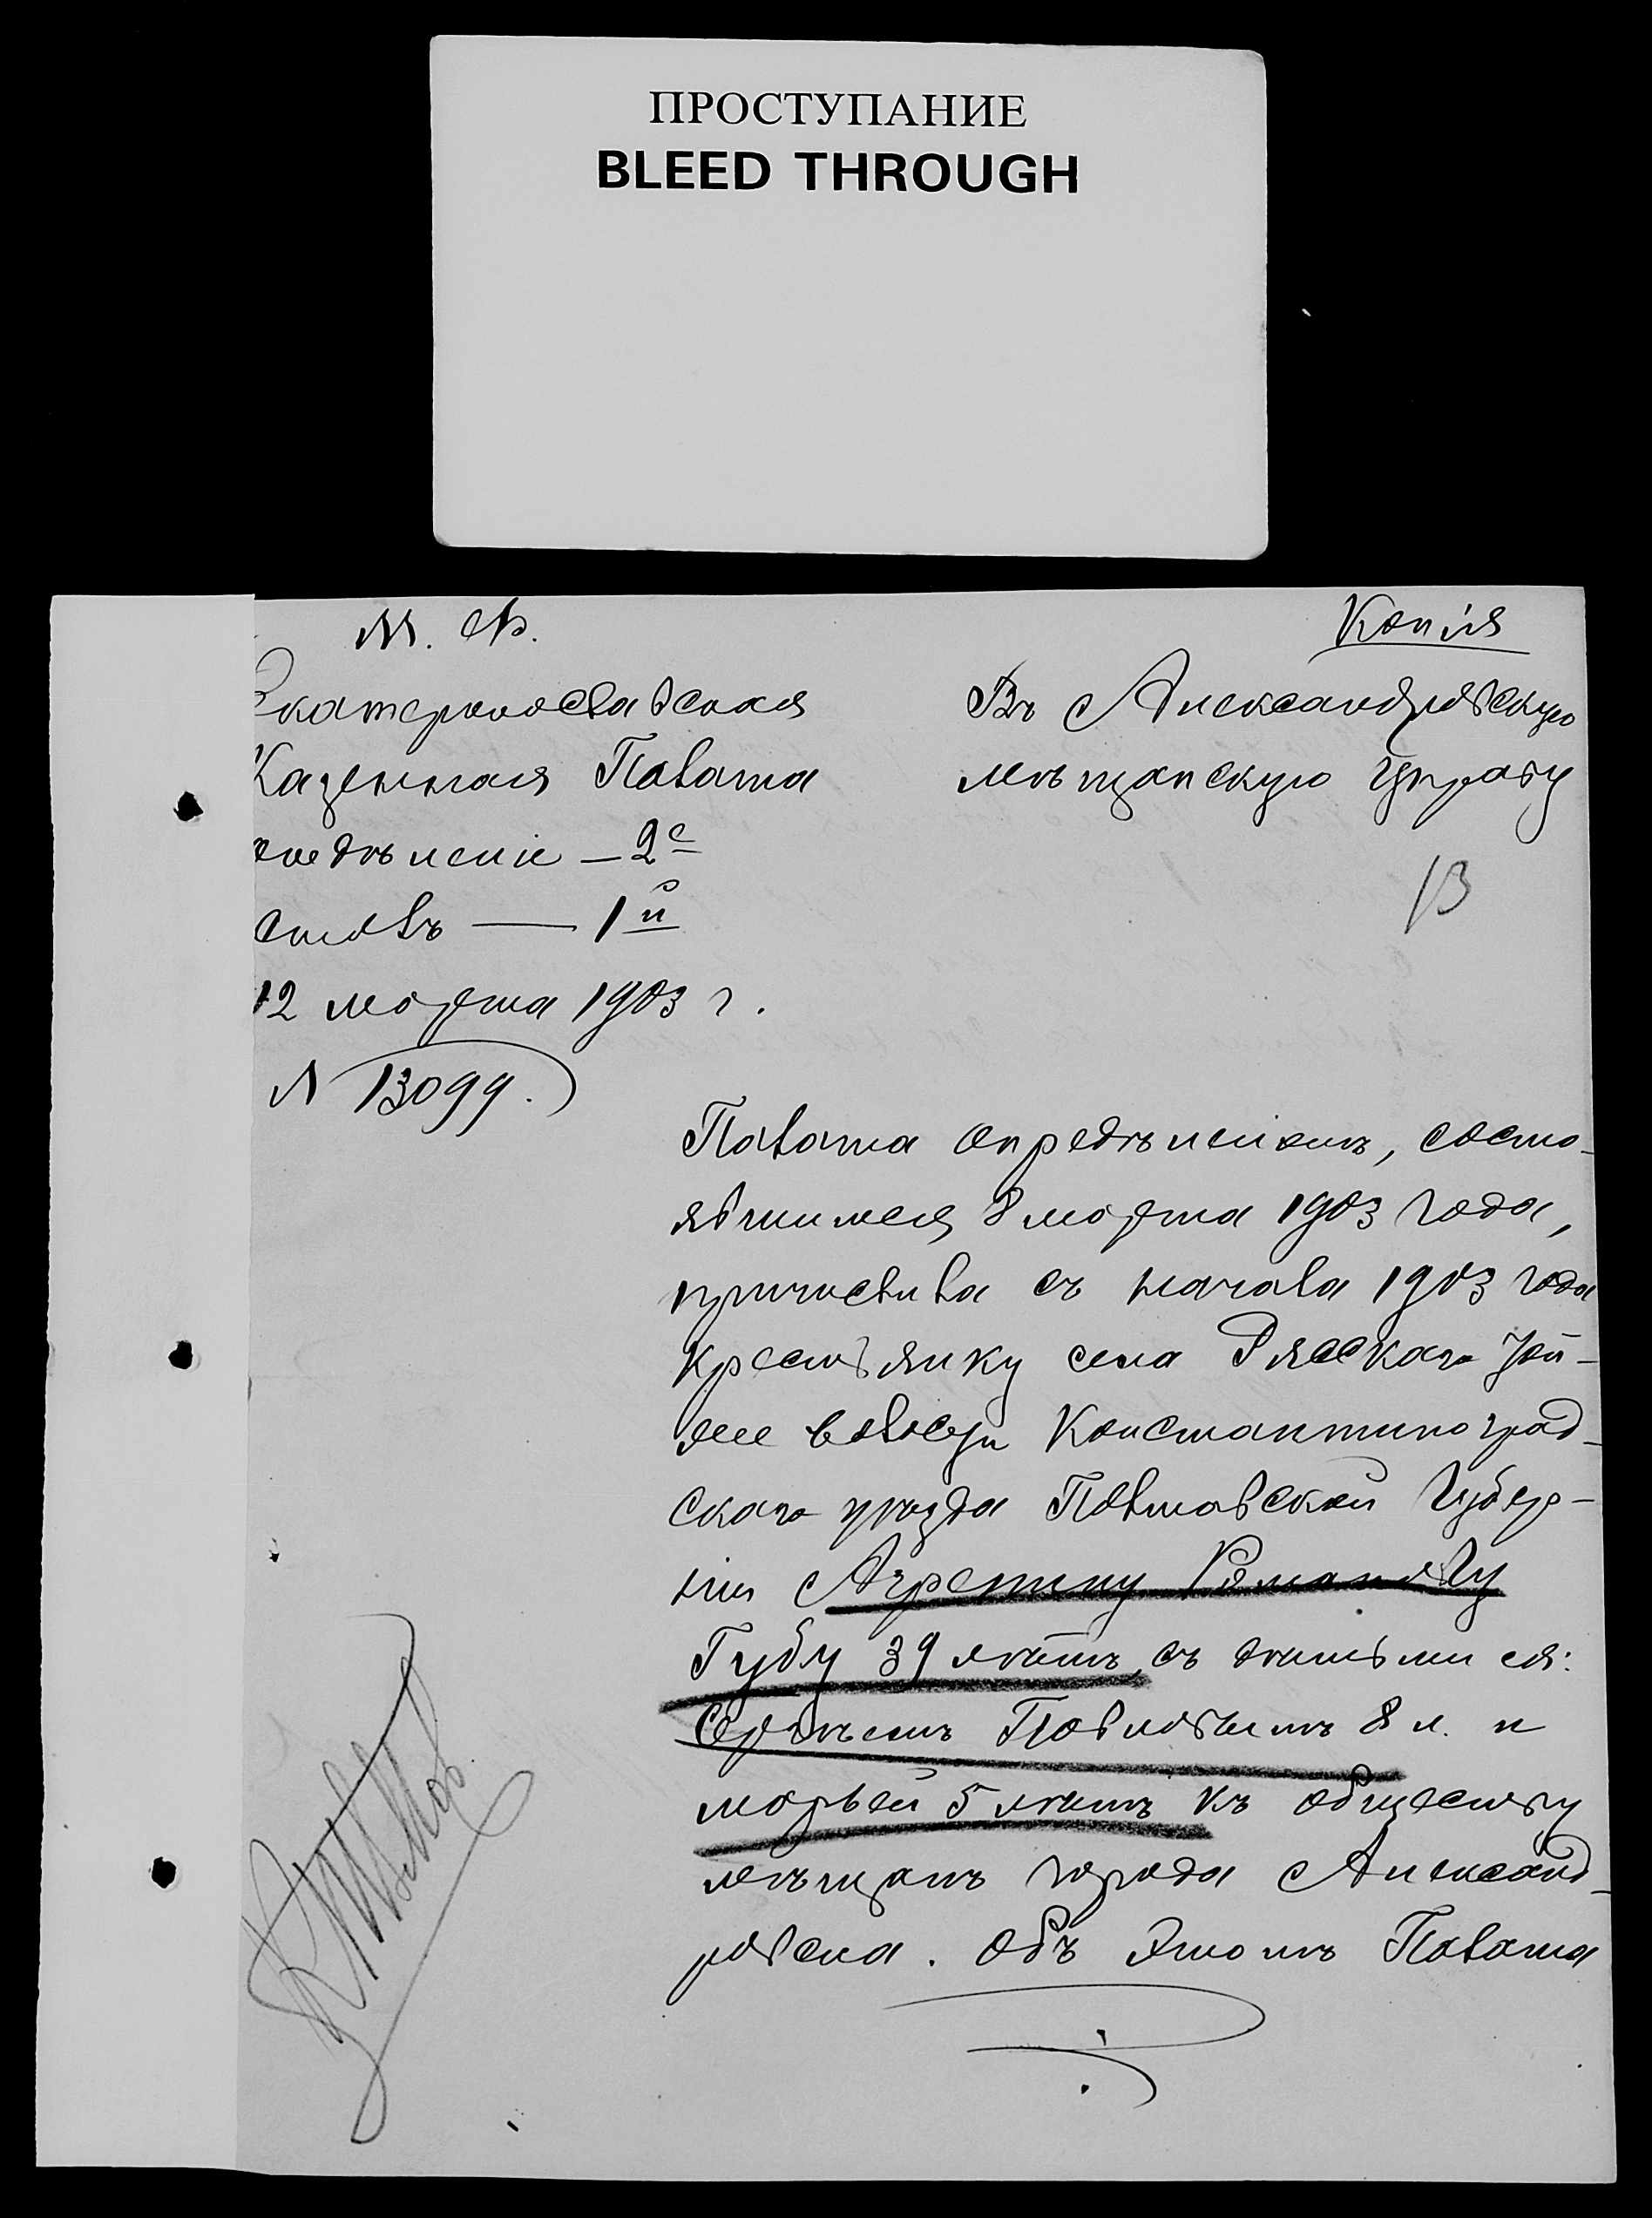 ПРОСТУПАНИЕ
BLEED THROUGH
М. Ф.
Копія
Екатеринославская
Казенная Палата
отдѣленіе – 2е
столъ — 1й
12 марта 1903 г.
№ 13099.
Въ Александровскую
мѣщанскую управу
13
Палата опредѣленіемъ, состо-
явшимся 8 марта 1903 года,
причислила съ начала 1903 года
крестьянку села Рясскаго той-
же волости Константиноград-
скаго уѣзда Полтавской Губер-
ніи Агрепину Романову
Губу 39 лѣтъ, съ дѣтьми ея:
Сергѣемъ Павловымъ 8 л. и
Марьей 5 лѣтъ къ обществу
мѣщанъ города Александ-
ровска. Объ этомъ Палата